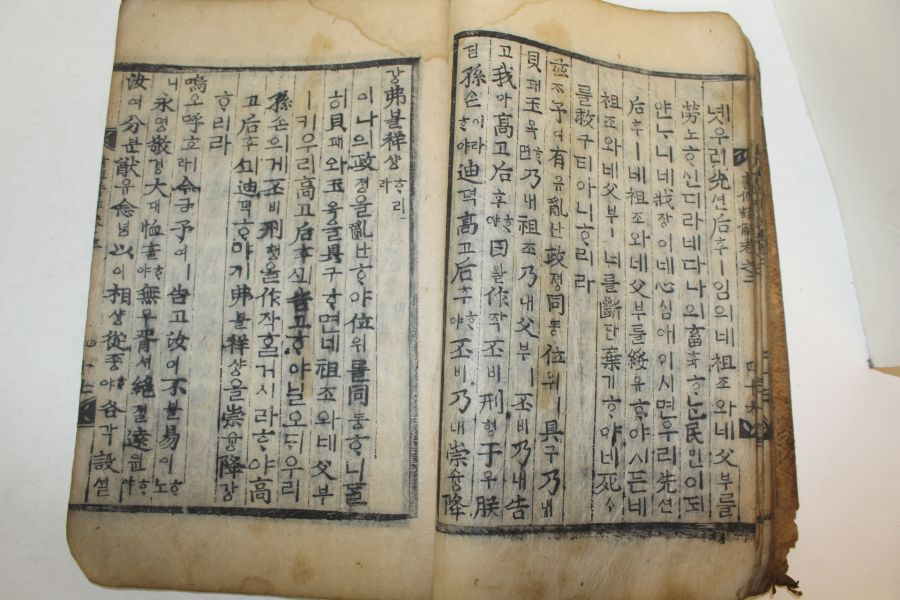 녯우리先션后후ㅣ임의네祖조와네父부를
勞노ᄒᆞ신디라네다나의畜휵ᄒᆞᆫ民민이도
얀ᄂᆞ니네戕장이네心심애이시면우리先션
后후ㅣ네祖조와네父부를綏유ᄒᆞ야시든네
祖조와네父부ㅣ너를斷단棄기ᄒᆞ야네死ᄉᆞ
를救구티아니ᄒᆞ리라
玆ᄌᆞ予여有유亂난政졍同동位위ㅣ具구乃내
貝패玉옥ᄒᆞ면乃내祖조乃내父부ㅣ丕비乃내告
고我아高고后후ᄒᆞ야曰왈作작丕비刑형于우朕
딤孫손이라ᄒᆞ야迪뎍高고后후ᄒᆞ야丕비乃내崇숭降
강弗불祥샹ᄒᆞ리라
이나의政졍을亂난ᄒᆞ야位위를同동ᄒᆞ니들
히貝패와玉옥을具구ᄒᆞ면네祖조와네父부
ㅣ키우리高고后후ᄭᅴ告고ᄒᆞ야닐오ᄃᆡ우리
孫손의게丕비刑형을作작ᄒᆞᆯ거시라ᄒᆞ야高
고后후ᄭᅴ迪뎍ᄒᆞ야키弗불祥샹을崇숭降강
ᄒᆞ리라
嗚오呼호라今금予여ㅣ告고汝여不불易이ᄒᆞ노
니永영敬경大대恤휼ᄒᆞ야無무胥셔絶졀遠원ᄒᆞ야
汝여分분猷유念념以이相샹從죵ᄒᆞ야各각設셜